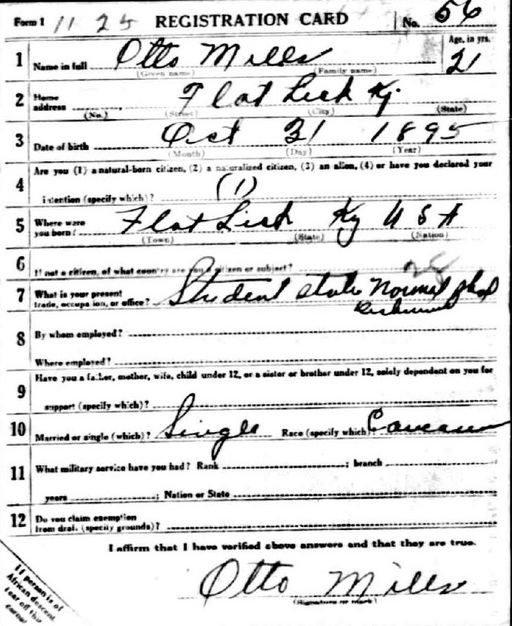 Form 1 11 25 REGISTRATION CARD No. 56
1 Name in full Otto Mills Age, in yrs. 21
(Given name) (Family name)
2 Home address Flat Lick Ky.
(No.) (Street) (City) (State)
3 Date of birth Oct 31 1895
(Month) (Day) (Year)
4 Are you (1) a natural-born citizen, (2) a naturalized citizen, (3) an alien, (4) or have you declared your
intention (specify which)? (1)
5 Where were you born? Flat Lick Ky U S A
(Town) (State) (Nation)
6 If not a citizen, of what country are you a citizen or subject?
7 What is your present trade, occupation, or office? Student state normal
8 By whom employed?
Where employed?
9 Have you a father, mother, wife, child under 12, or a sister or brother under 12, solely dependent on you for
support (specify which)?
10 Married or single (which)? Single Race (specify which)?
11 What military service have you had? Rank ; branch
years ; Nation or State
12 Do you claim exemption from draft (specify grounds)?
I affirm that I have verified above answers and that they are true.
Otto Mills
(Signature or mark)
If person is of
African descent
tear off this
corner